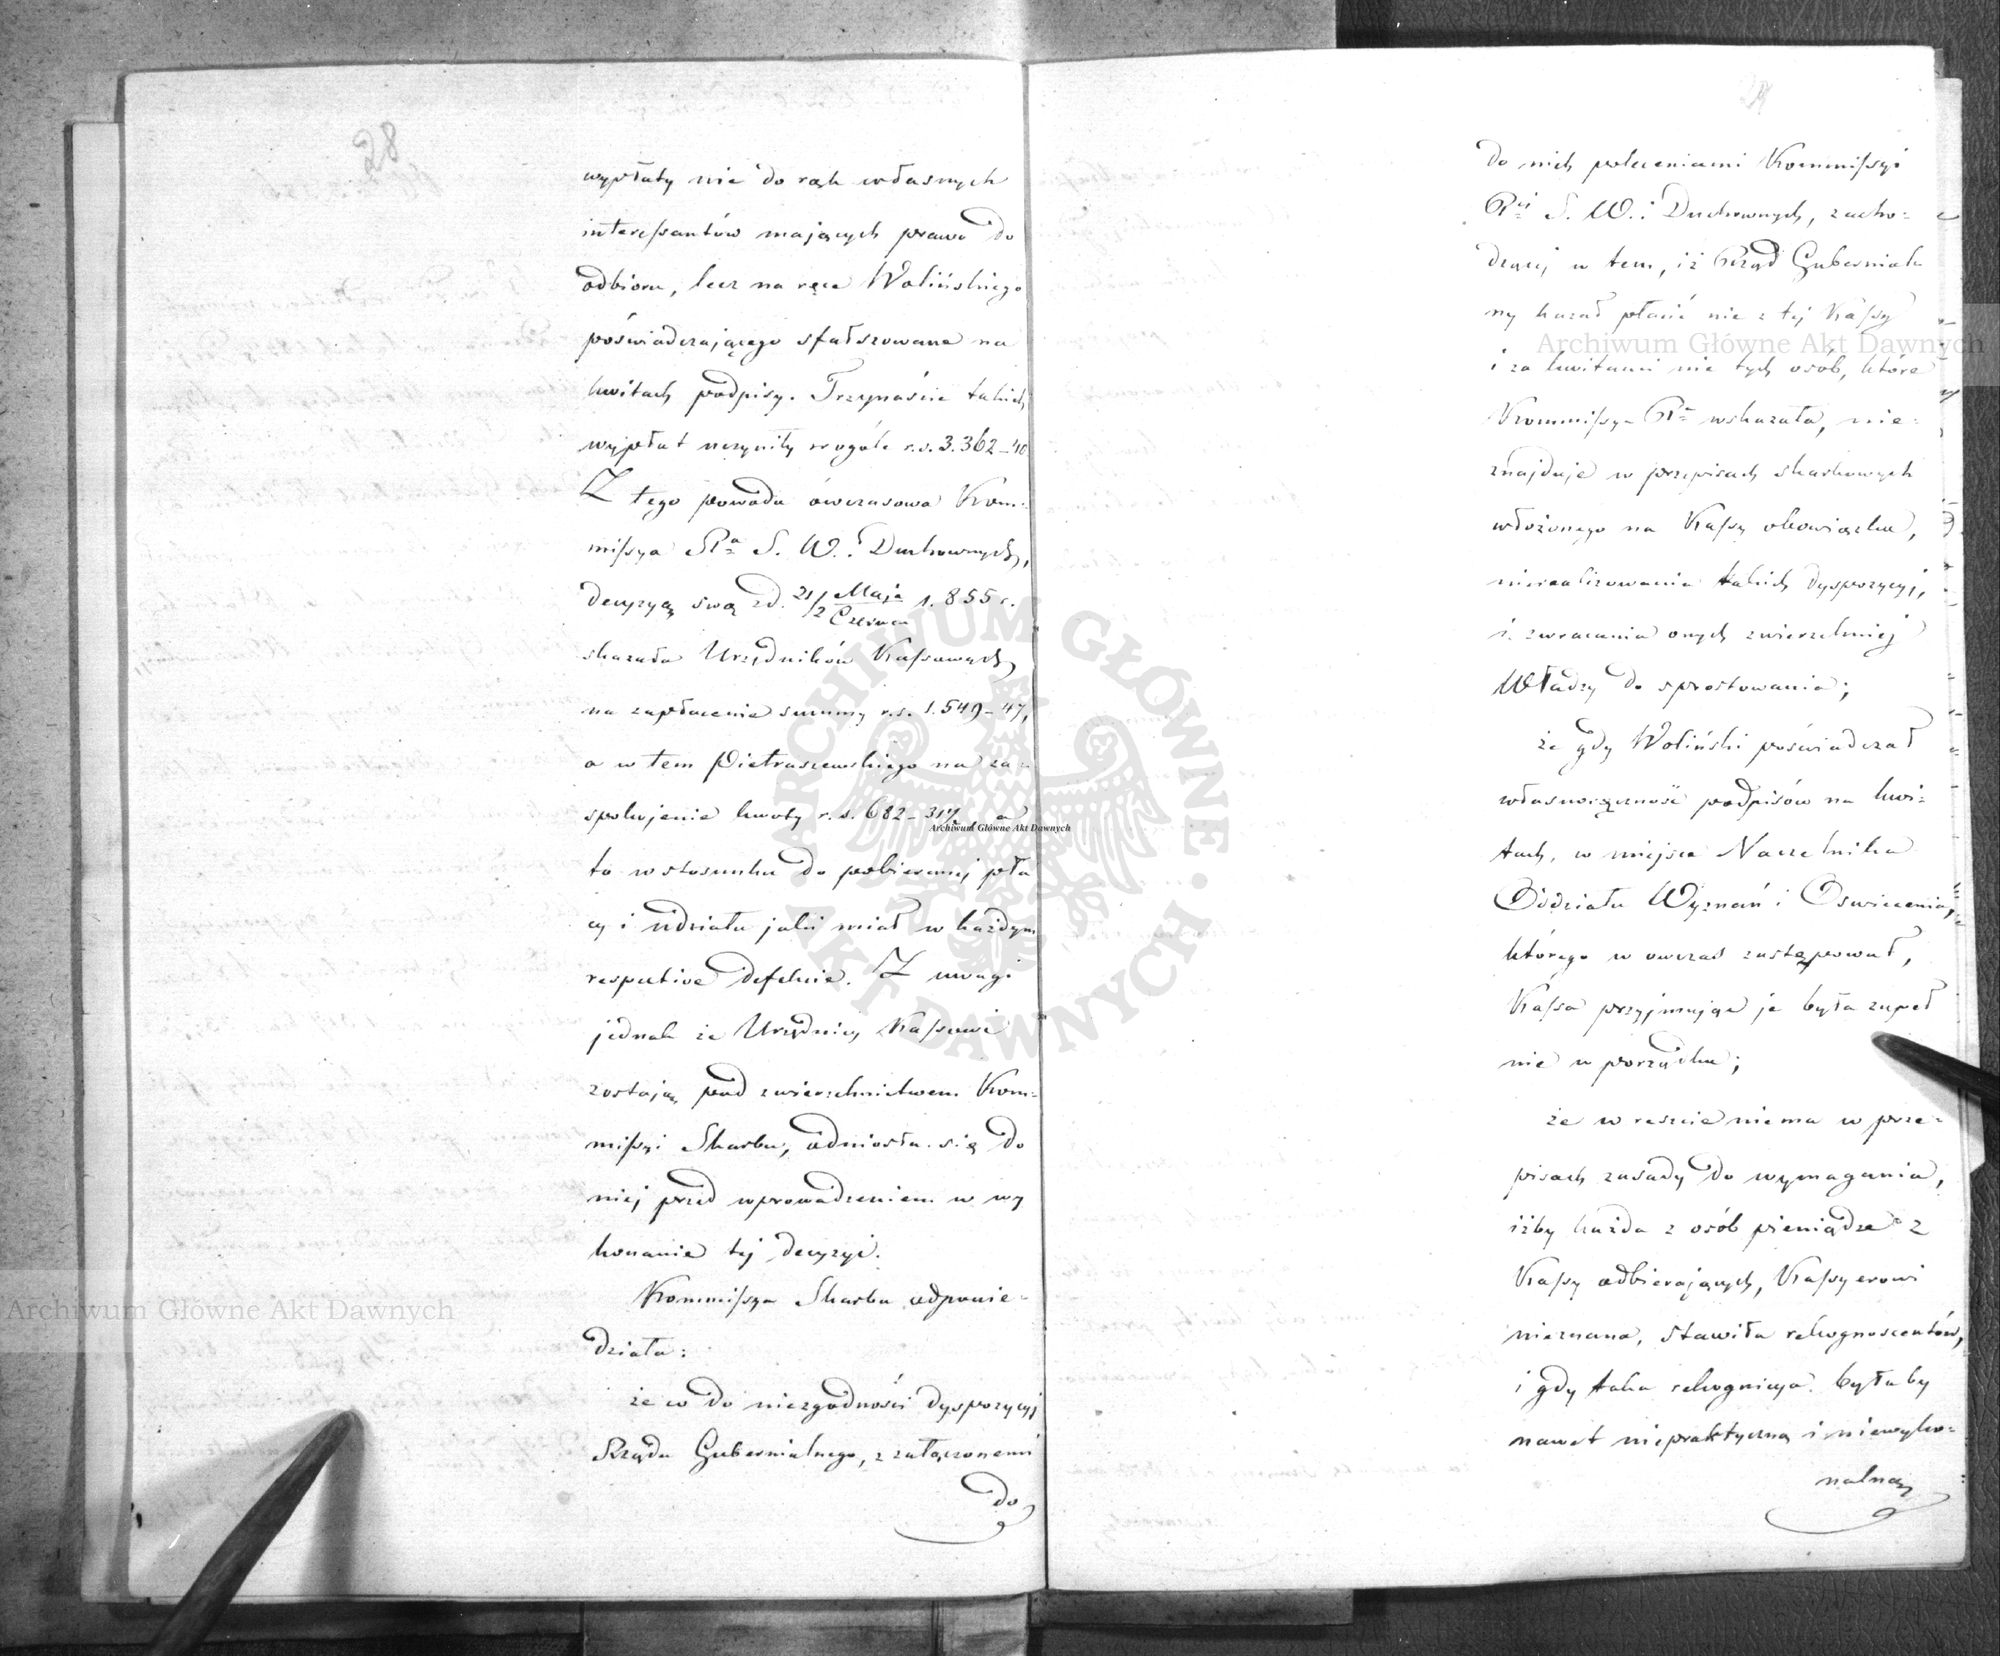 28
wypłaty nie do rąk własnych
interessantów mających prawo do
odbioru, lecz na ręce Wolińskiego
poświadczającego sfałszowane na
kwitach podpisy. Trzynaście takich
wypłat uczyniły w ogóle r.s. 3.362_40
Z tego powodu ówczasowa Kom-
missya Rª S. W. i Duchownych,
decyzyą swą z d. 21/2 Maja/Czerwca 1.855 r.
skazała Urzędników Kassowych
na zapłacenie summy r.s. 1.549_47,
a w tem Pietraszewskiego na za-
spokojenie kwoty r.s. 682_31½, a
to w stosunku do pobieranej pła
cy i udziału jaki miał w każdym
respective defekcie. Z uwagi
jednak że Urzędnicy Kassowi
zostają pod zwierzchnictwem Kom-
missyi Skarbu, odniosła się do
niej przed wprowadzeniem w wy
konanie tej decyzyi.
Kommissya Skarbu odpowie-
działa:
że co do niezgodności dyspozycyj
Rządu Gubernialnego, z załączonemi
do
29
do nich poleceniami Kommissyi
Rᵉʲ S. W. i Duchownych, zacho-
dzącej w tem, iż Rząd Gubernial-
ny kazał płacić nie z tej Kassy
i za kwitami nie tych osób, które
Kommissya Rª wskazała, nie-
znajduje w przepisach skarbowych
włożonego na Kassy obowiązku,
nierealizowania takich dyspozycyj,
i zwracania onych zwierzchniej
Władzy do sprostowania;
że gdy Woliński poświadczał
własnoręczność podpisów na kwi-
tach, w miejsce Naczelnika
Oddziału Wyznań i Oświecenia,
którego w owczas zastępował,
Kassa przyjmując je była zupeł
nie w porządku;
że w reszcie niema w prze-
pisach zasady do wymagania,
iżby każda z osób pieniądze z
Kassy odbierających, Kassyerowi
nieznana, stawiła rekognoscentów,
i gdy taka rekognicya byłaby
nawet niepraktyczną i niewyko-
nalną
Archiwum Główne Akt Dawnych
Archiwum Główne Akt Dawnych
Archiwum Główne Akt Dawnych
ARCHIWUM GŁÓWNE AKT DAWNYCH